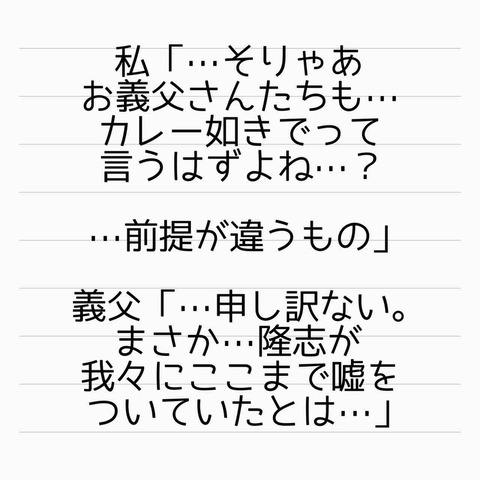 私「…そりゃあ
お義父さんたちも…
カレー如きでって
言うはずよね…？
…前提が違うもの」
義父「…申し訳ない。
まさか…隆志が
我々にここまで嘘を
ついていたとは…」